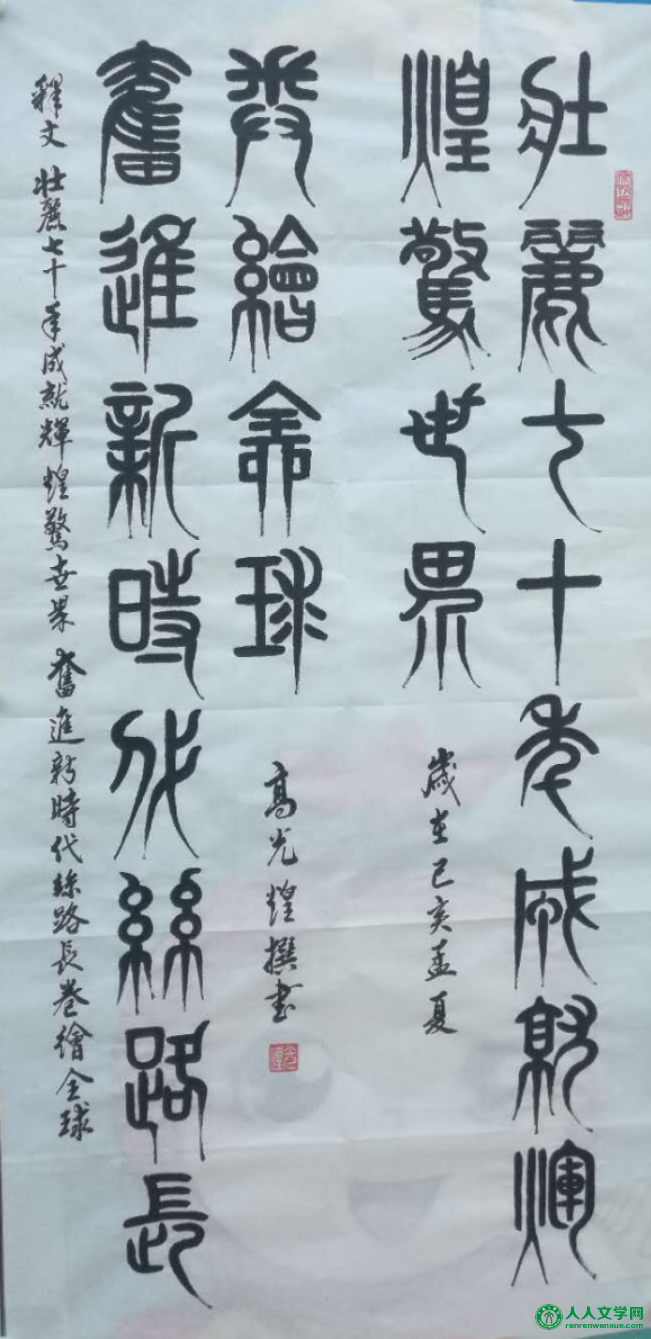 壯麗七十年成就輝
煌驚世界
歲在己亥孟夏
奮進新時代絲路長
卷繪全球
高光煌撰書
釋文 壯麗七十年成就輝煌驚世界 奮進新時代絲路長卷繪全球
人人文学网
renrenwenxue.com